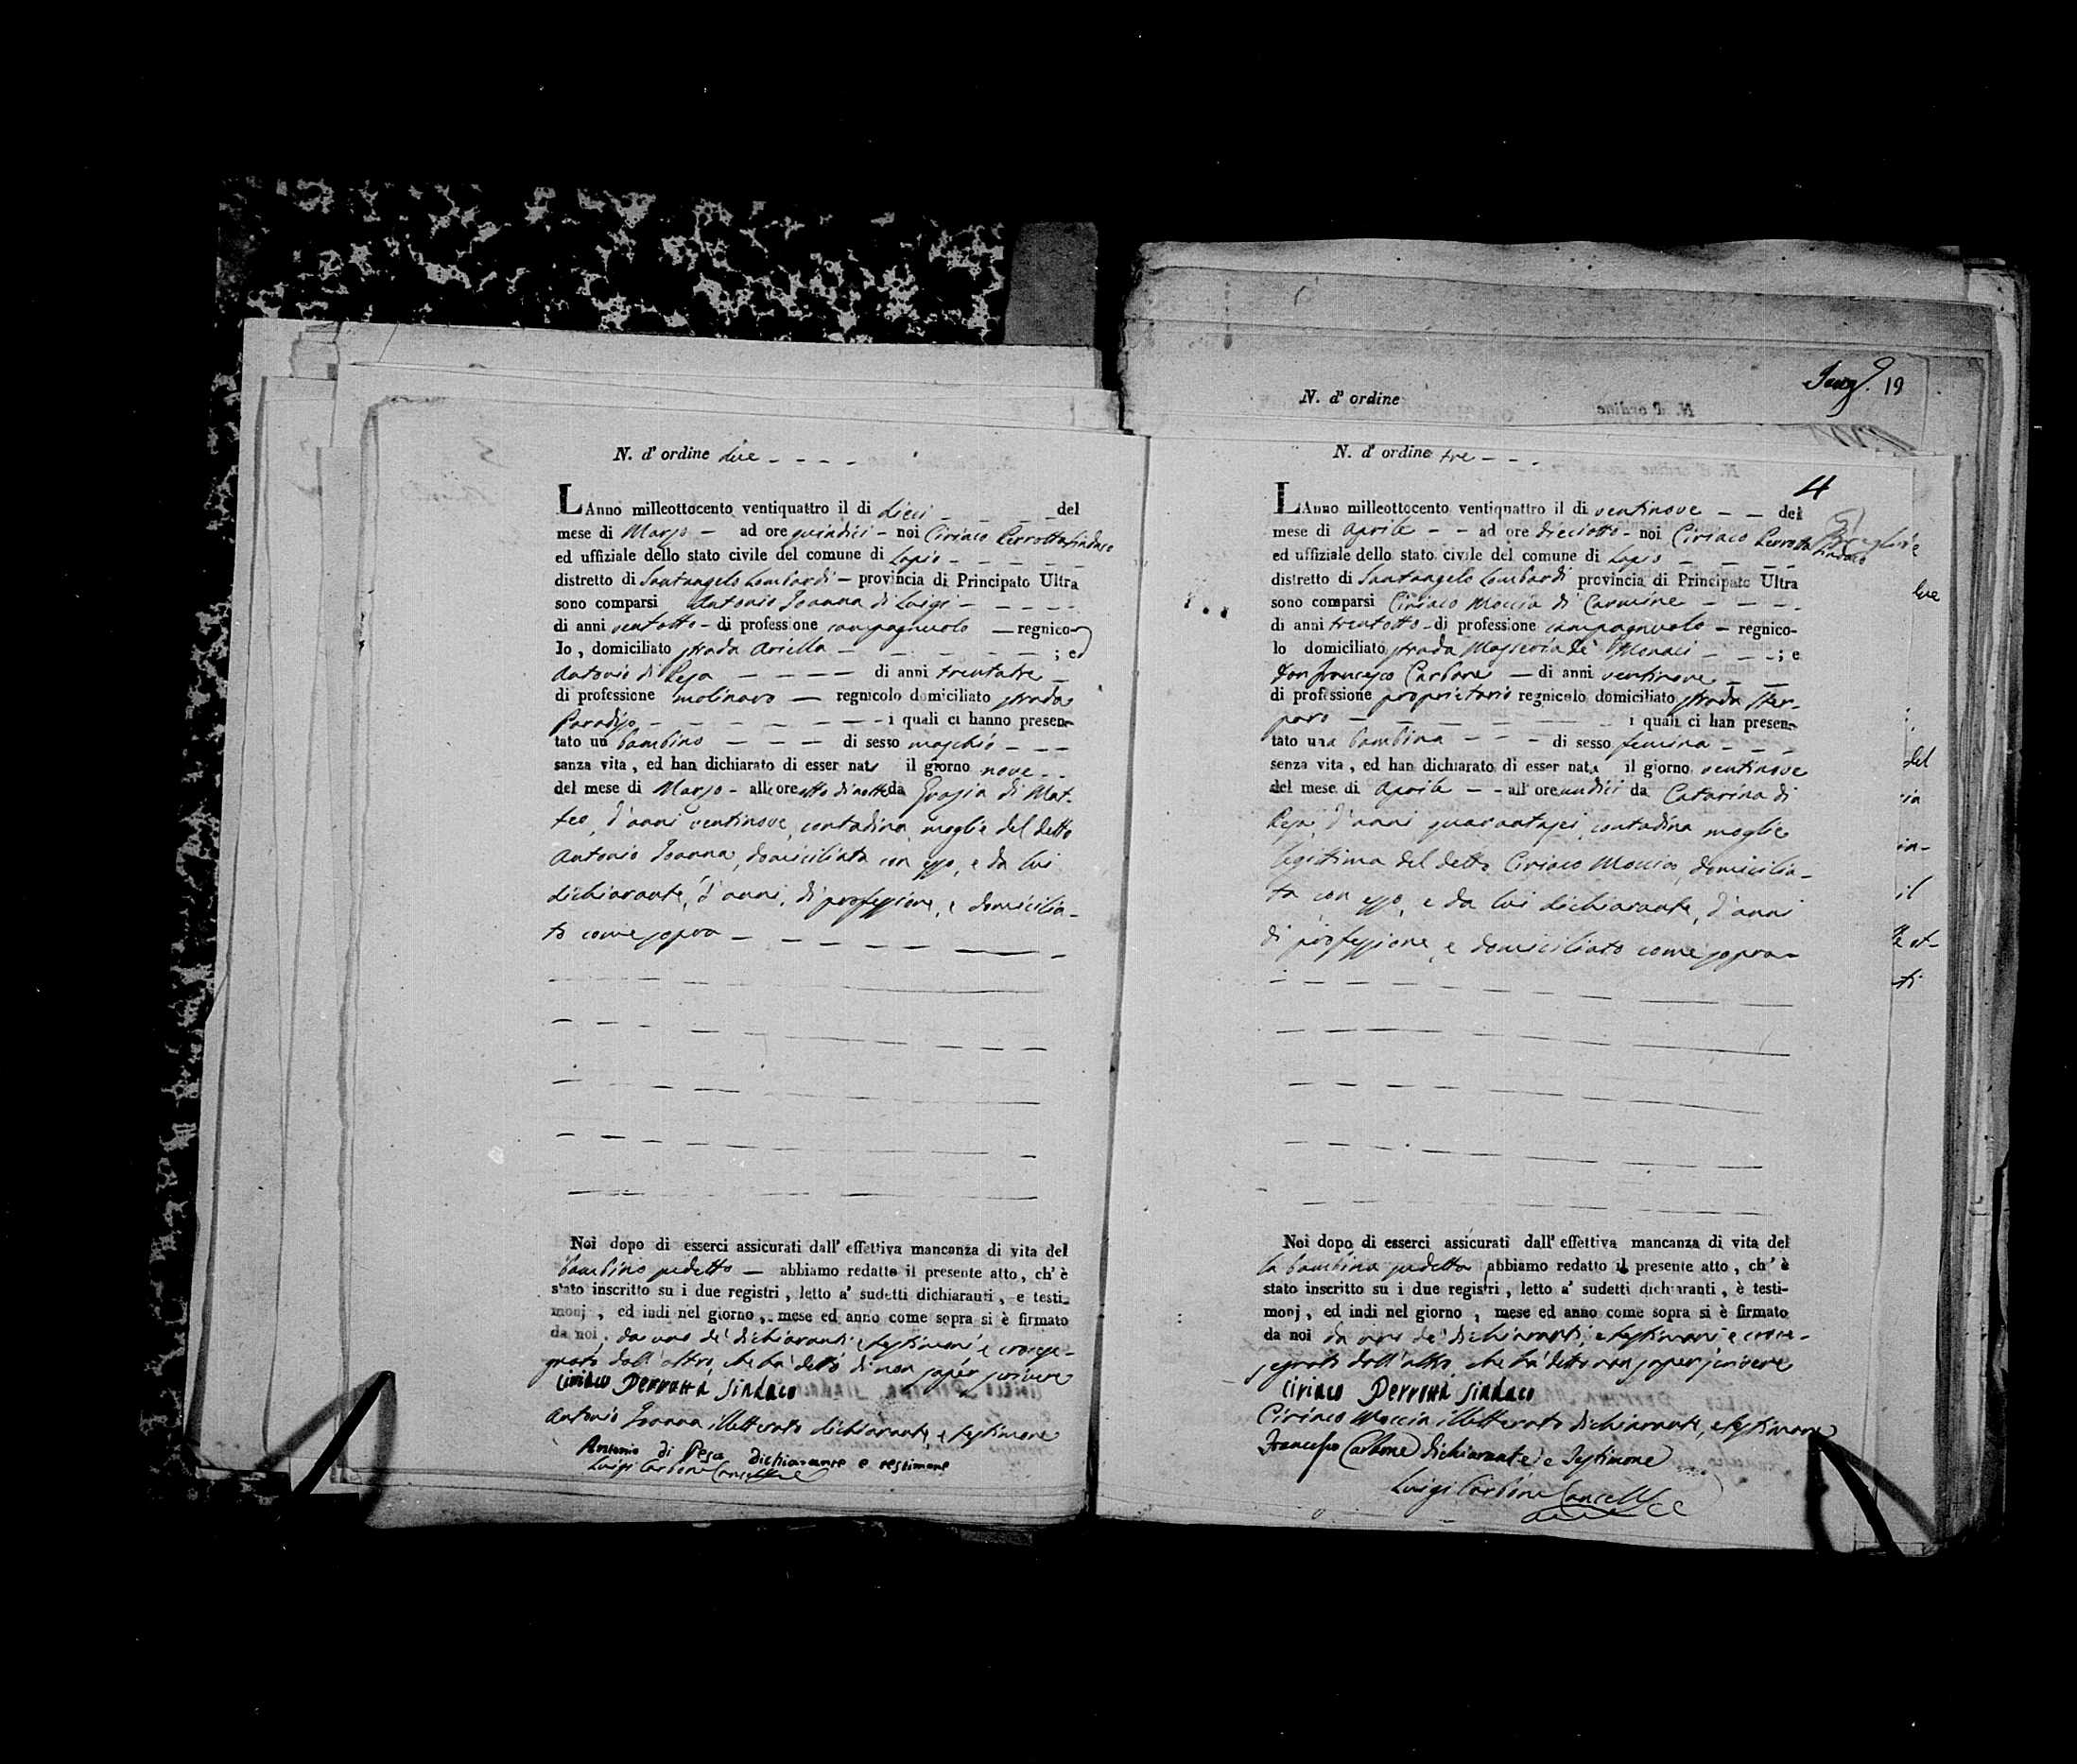 N. d' ordine due
LAnno milleottocento ventiquattro il di dieci del
mese di Marzo ad ore quindici noi Ciriaco Perrotta Sindaco
ed uffiziale dello stato civile del comune di Lapio
distretto di Santangelo Lombardi provincia di Principato Ultra
sono comparsi Antonio Ioanna di Luigi
di anni ventotto di professione campagnuolo regnico-
lo , domiciliato strada Ariella ; ed
Antonio di Pesa di anni trentatre
di professione molinaro regnicolo domiciliato strada
Paradiso i quali ci hanno presen-
tato un bambino di sesso maschio
sanza vita , ed han dichiarato di esser nato il giorno nove
del mese di Marzo alle ore otto di notte da Grazia di Mat-
teo, d'anni ventinove, contadina moglie del detto
Antonio Ioanna, domiciliata con esso, e da lui
dichiarante, d'anni, di professione, e domicilia-
to come sopra
Noi dopo di esserci assicurati dall' effettiva mancanza di vita del
bambino sudetto abbiamo redatto il presente atto , ch' è
stato inscritto su i due registri , letto a' sudetti dichiaranti , e testi-
monj , ed indi nel giorno , mese ed anno come sopra si è firmato
da noi, da uno de' dichiaranti e testimoni e croce-
gnato dall' altro, che ha detto di non saper scrivere
Ciriaco Perrotta Sindaco
Antonio Ioanna illetterato dichiarante, e testimone
Antonio di Pesa dichiarante e testimone
Luigi Carbone Cancelliere
N. d' ordine
19
N. d' ordine tre
4
LAnno milleottocento ventiquattro il di ventinove del
mese di Aprile ad ore dieciotto noi Ciriaco Perrotta Sindaco
ed uffiziale dello stato civile del comune di Lapio
distretto di Santangelo Lombardi provincia di Principato Ultra
sono comparsi Ciriaco Moccia di Carmine
di anni trentotto di professione campagnuolo regnico-
lo domiciliato strada Masseria de' Monaci ; e
Don Francesco Carbone di anni ventinove
di professione proprietario regnicolo domiciliato strada Ster-
paro i quali ci han presen-
tato una bambina di sesso femina
senza vita , ed han dichiarato di esser nata il giorno ventinove
del mese di Aprile all' ore undici da Catarina di
Pesa, d'anni quarantasei, contadina moglie
legittima del detto Ciriaco Moccia, domicilia-
ta con esso, e da lui dichiarante, d'anni
di professione, e domiciliato come sopra
Noi dopo di esserci assicurati dall' effettiva mancanza di vita del
la bambina sudetta abbiamo redatto il presente atto , ch' è
stato inscritto su i due registri , letto a' sudetti dichiaranti , è testi-
monj , ed indi nel giorno , mese ed anno come sopra si è firmato
da noi da uno de' dichiaranti, e testimoni e croce-
segnato dall' altro che ha detto non saper scrivere
Ciriaco Perrotta Sindaco
Ciriaco Moccia illetterato dichiarante, e testimone
Francesco Carbone dichiarante e Testimone
Luigi Carbone Cancelliere